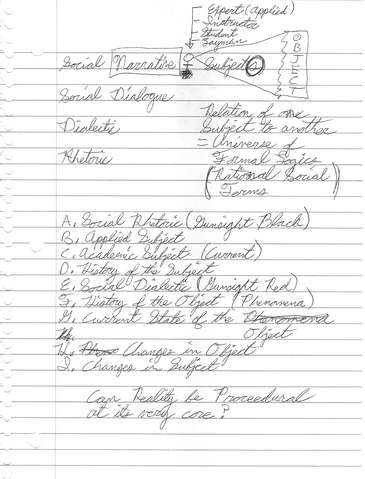 Expert (Applied)
Instructor
Student
Layman
Social Narrative Subject
OBJECT
Social Dialogue
Dialectic
Rhetoric
Relation of one
Subject to another
= Universe of
Formal Logics
(Rational Social)
Forms
A, Social Rhetoric (Gunsight Black)
B, Applied Subject
C, Academic Subject (Current)
D, History of the Subject
E, Social Dialectic (Gunsight Red)
F, History of the Object (Phenomena)
G, Current State of the Phenomena
Object
H, Changes in Object
I, Changes in Subject
Can Reality be Proceedural
at its very core?